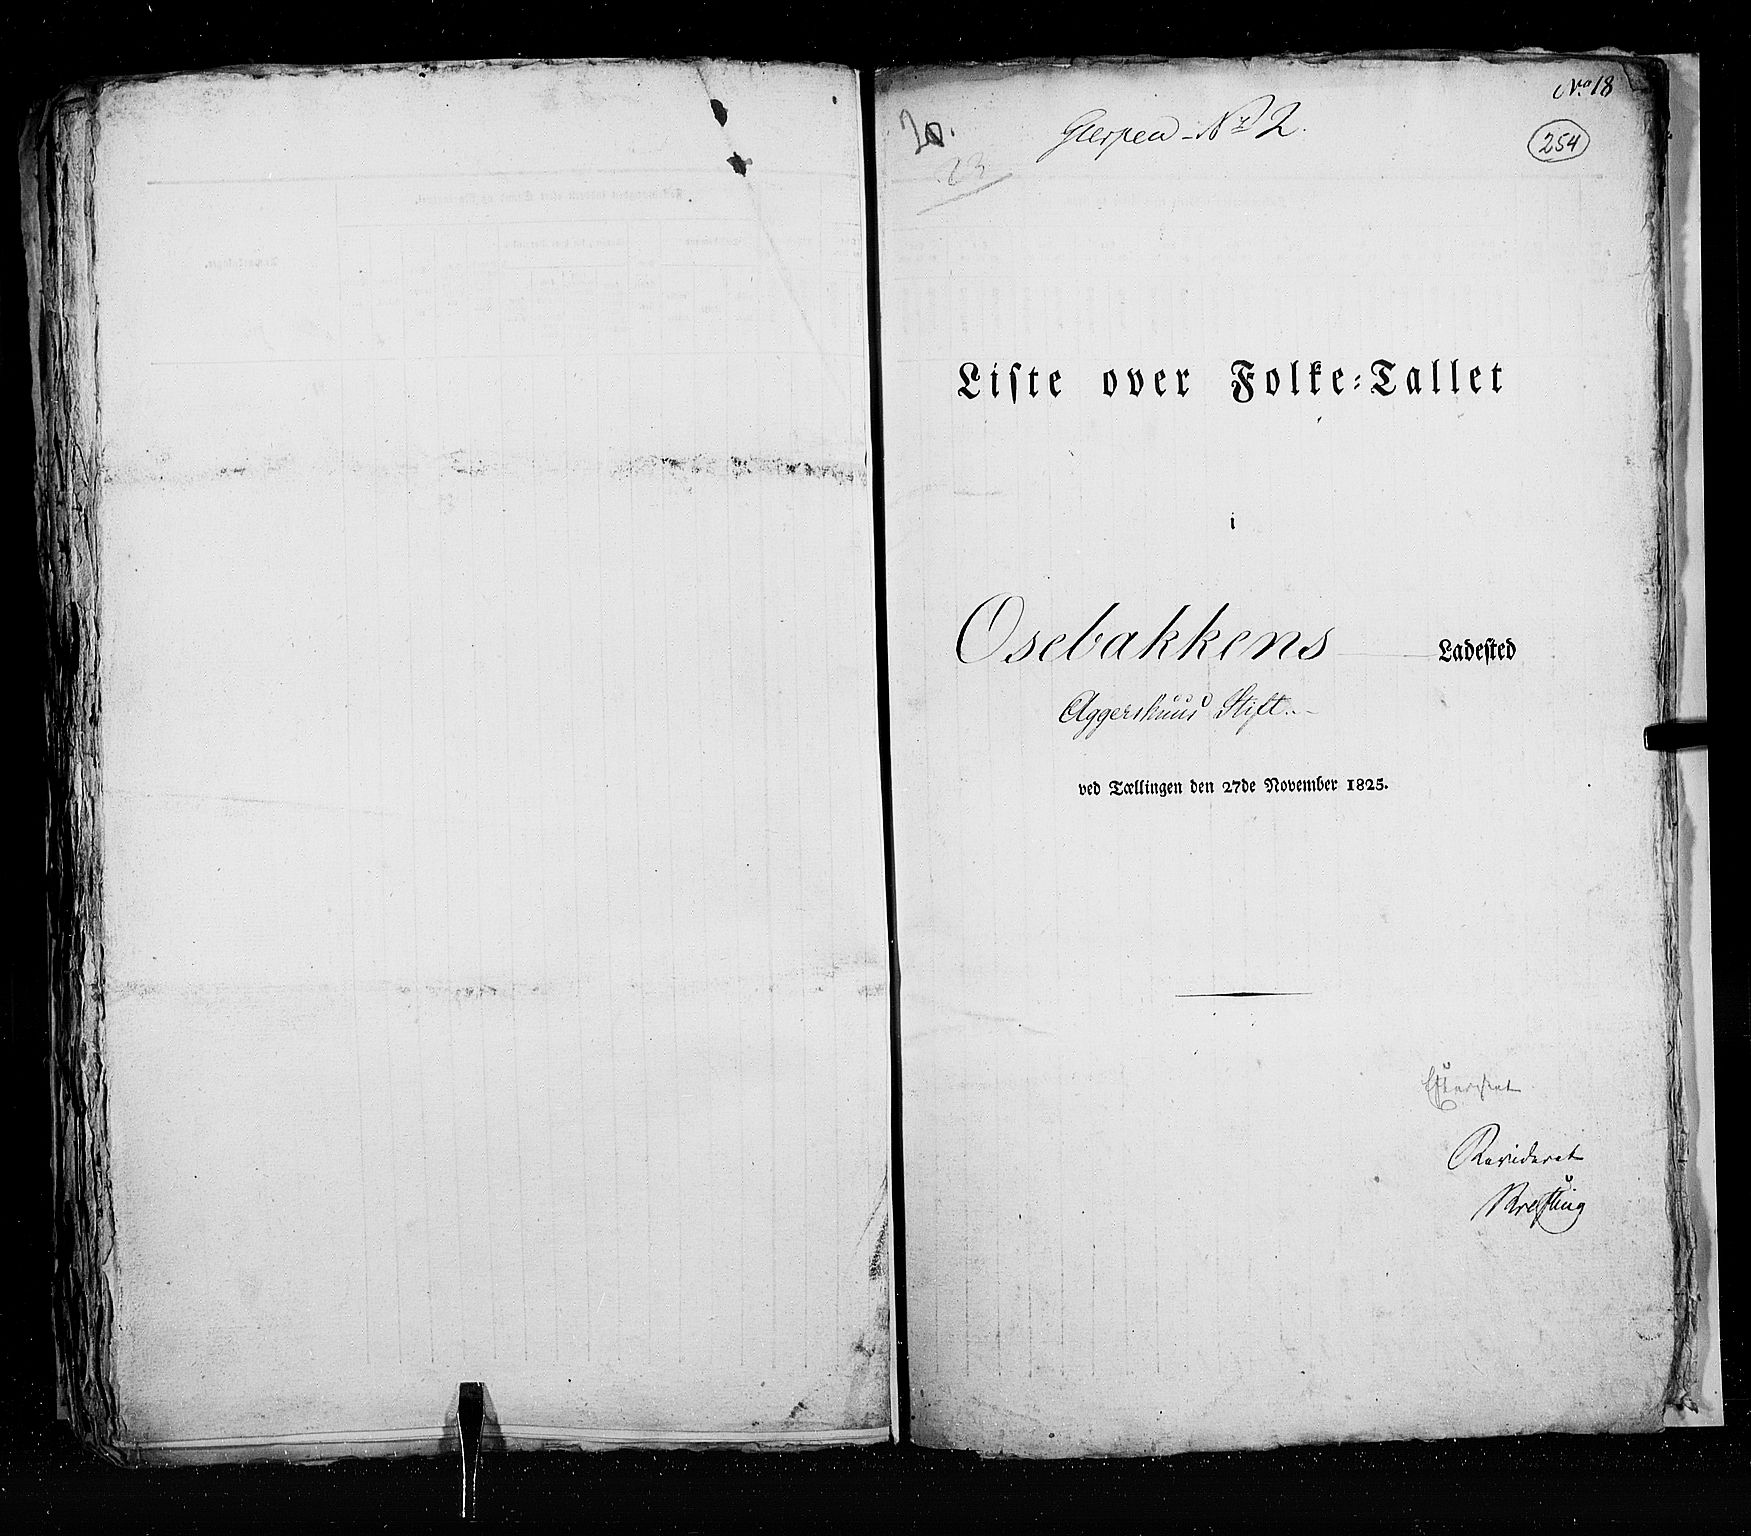 No 18
20.
Gierpen - No 2.
254
23
Liste over Folke-Tallet
i
Osebakkens Ladested
Aggershuus Stift.
ved Tællingen den 27de November 1825.
Efterseet
Revideret